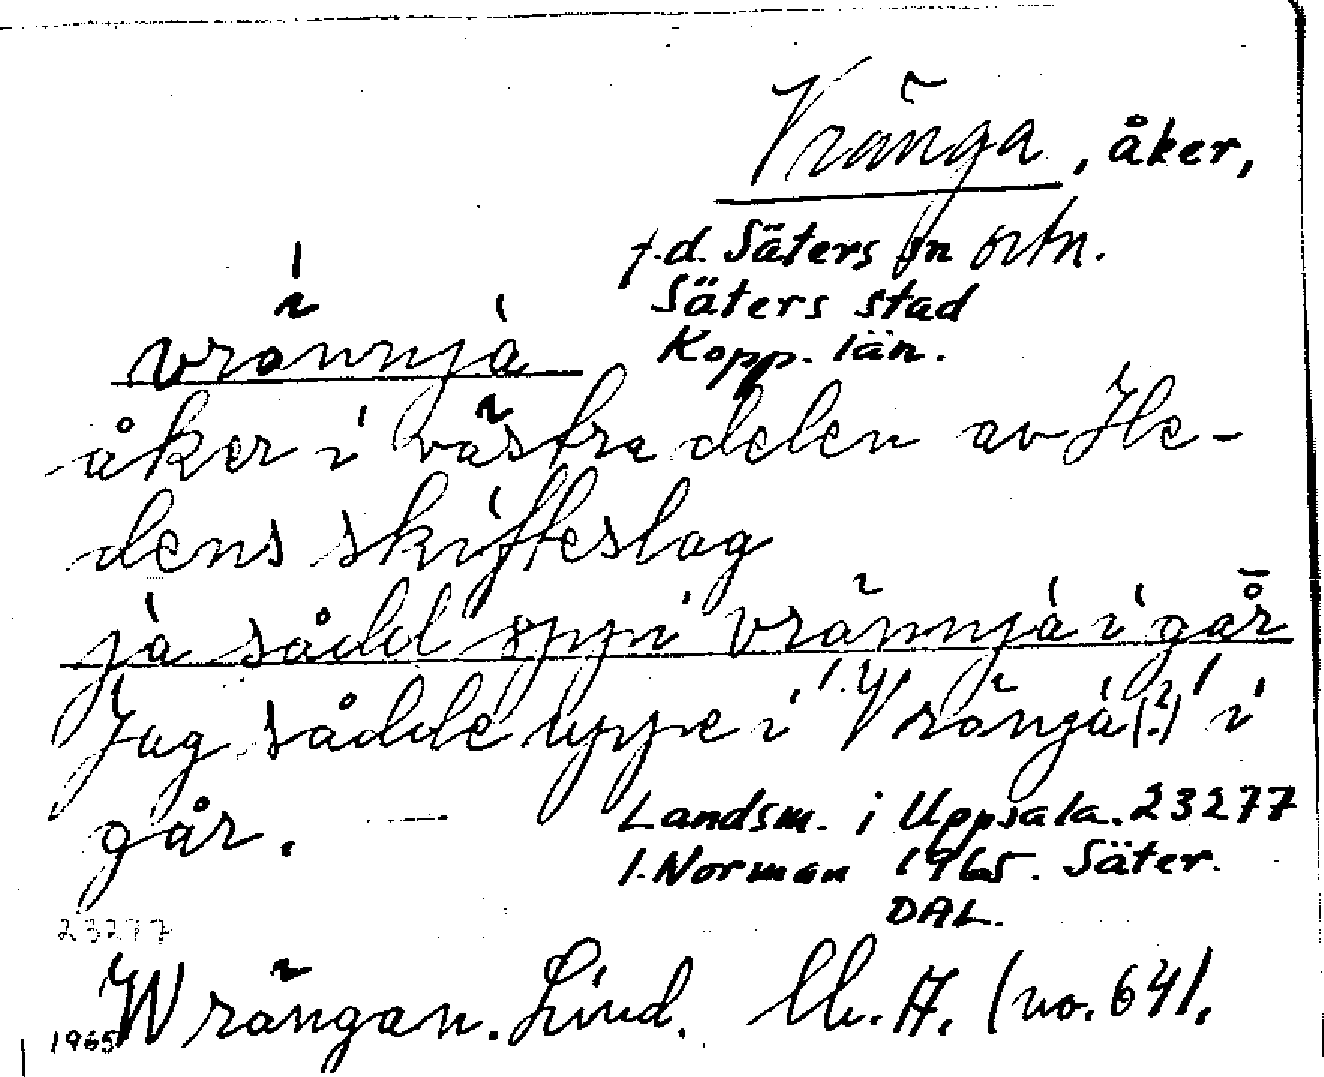 Vränga, åker,
f.d. Säters fn ortn.
Säters stad
Kopp. län.
vrännjà
åker i västra delen av He-
dens skifteslag
jà sådd ypp i vrännjà i går
Jag sådde uppe i Vrängà (?) i
går.
Landsm. i Uppsala. 23277
I. Norman 1965. Säter.
DAL.
23277
Wrängan. Lind. Ll. A. (no. 64).
1965